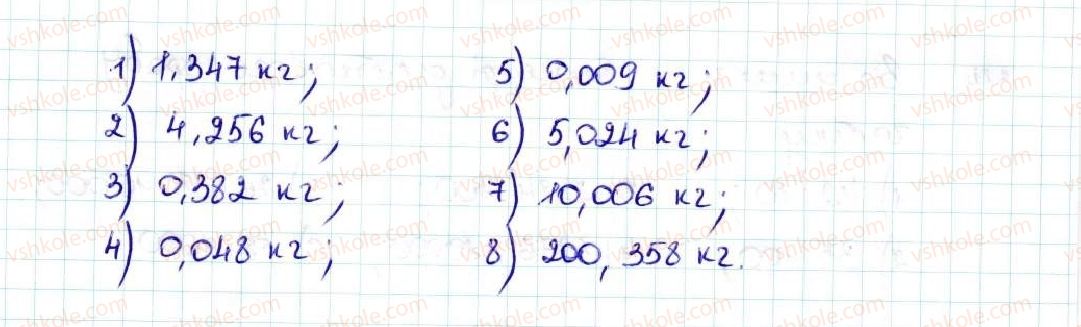 1) 1,347 кг;
2) 4,256 кг;
3) 0,382 кг;
4) 0,048 кг;
5) 0,009 кг;
6) 5,024 кг;
7) 10,006 кг;
8) 200,358 кг.
vshkole.com